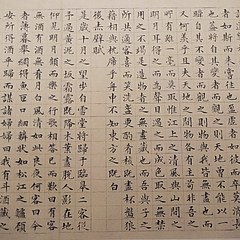 者如斯而未嘗往也盈虛者如彼而卒莫消長
也蓋將自其變者而觀之則天地曾不能以一
瞬自其不變者而觀之則物與我皆無盡也而
又何羨乎且夫天地之間物各有主苟非吾之
所有雖一毫而莫取惟江上之清風與山間之
明月耳得之而為聲目遇之而成色取之無禁
用之不竭是造物者之無盡藏也而吾與子之
所共適客喜而笑洗盞更酌肴核既盡杯盤狼
籍相與枕藉乎舟中不知東方之既白
後赤壁賦
是歲十月之望步自雪堂將歸于臨皋二客從
予過黃泥之坂霜露既降木葉盡脫人影在地
仰見明月顧而樂之行歌相答已而歎曰有客
無酒有酒無肴月白風清如此良夜何客曰今
者薄暮舉網得魚巨口細鱗狀如松江之鱸顧
安所得酒乎歸而謀諸婦婦曰我有斗酒藏之